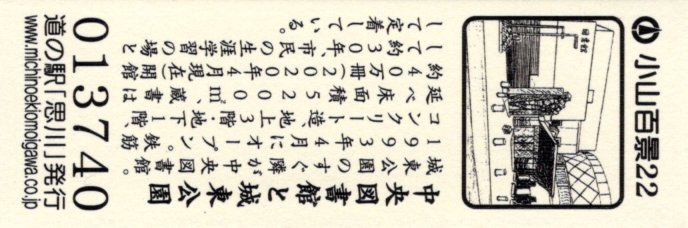 小山百景22
図書館
中央図書館と城東公園
城東公園のすぐ隣が中央図書館。
1993年4月にオープン。鉄筋
コンクリート造、地上3階、地下1階、
延べ床面積5200㎡、蔵書は
約40万冊(2020年4月現在)。開館
して約30年、市民の生涯学習の場と
して定着している。
013740
道の駅「思川」発行
www.michinoekiomoigawa.co.jp